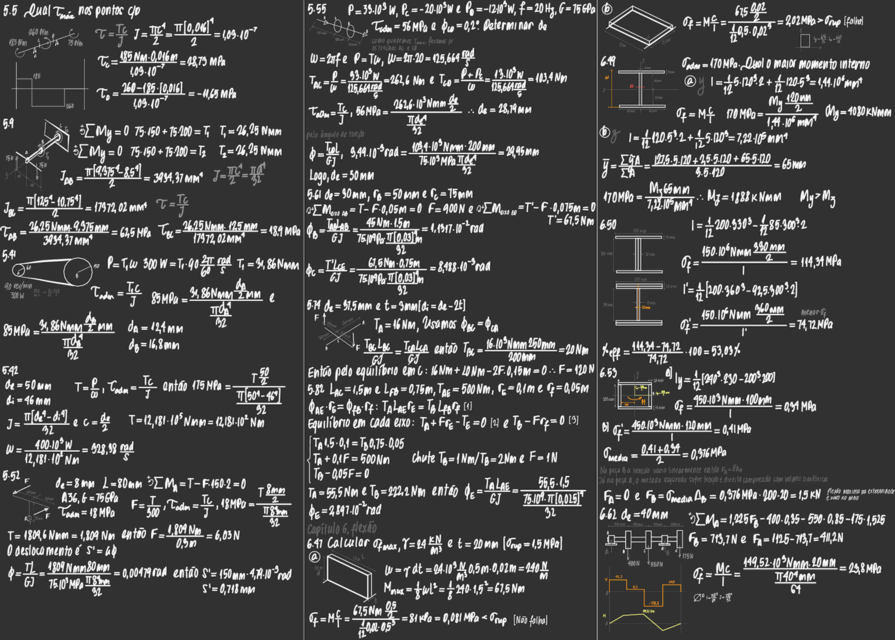 5.5 Qual τmáx nos pontos C/D
τ = Tc/J J = πc⁴/2 = π[0,016]⁴/2 = 1,03·10⁻⁷
τc = 185Nm·0,016m/1,03·10⁻⁷ = 28,73 MPa
τD = 260-185·[0,016]/1,03·10⁻⁷ = -11,65 MPa
5.9
∑My = 0 75·150+75·200 = T₁ T₁ = 26,25 Nmm
∑My = 0 75·150+75·200 = T₂ T₂ = 26,25 Nmm
JAB = π[9,375⁴-8,5⁴]/2 = 3934,37mm⁴ J = πc⁴/2 = πd⁴/32
JBC = π[12,5⁴-10,75⁴]/2 = 17372,02mm⁴ τ = Tc/J
τAB = 26,25Nmm·9,375mm/3934,37mm⁴ = 62,5MPa τBC = 26,25Nmm·12,5mm/17372,02mm⁴ = 18,9MPa
5.41
P = T₁ω 300W = T₁·90 2π/60 rad/s T₁ = 31,86Nmm
τadm = T₁c/J 85MPa = 31,86Nmm dA/2 mm / πdA⁴/32 e
85MPa = 31,86Nmm dB/2 mm / πdB⁴/32 dA = 12,4mm
dB = 16,8mm
5.42
de = 50mm
di = 46mm
T = P/ω, τadm = Tc/J então 175MPa = T 50/2 / π[50⁴-46⁴]/32
J = π[de⁴-di⁴]/32 e c = de/2 T = 12,181·10⁵Nmm = 12,181·10²Nm
ω = 400·10³W/12,181·10²Nm = 328,38 rad/s
5.52
de = 8mm L = 80mm ∑MA = T-F·150·2 = 0
A36, G = 75GPa
τadm = 18MPa
F = T/300, τadm = Tc/J, 18MPa = T 8mm/2 / π8⁴mm/32
T = 1809,6Nmm = 1,809Nm então F = 1,809Nm/0,3m = 6,03N
O deslocamento é S' = 6ϕ
ϕ = TL/GJ = 1809Nmm80mm/75·10³MPa π8⁴mm/32 = 0,00479rad então S' = 150mm·4,79·10⁻³rad
S' = 0,718mm
5.55 P = 33·10³W, PC = -20·10³W e PB = -12·10³W, f = 20Hz, G = 75GPa
τadm = 56MPa e ϕCD = 0,2° Determinar de
ω = 2πf e P = Tω, ω = 2π·20 = 125,664 rad/s
TBC = P/ω = 33·10³W/125,664rad/s = 262,6Nm e TCD = P+PC/ω = 13·10³W/125,664rad/s = 103,4Nm
τadm = Tc/J, 56MPa = 262,6·10³Nmm de/2 / πde⁴/32 ∴ de = 28,79mm
pelo ângulo de torção
ϕ = TCDL/GJ, 3,49·10⁻³rad = 103,4·10³Nmm·200mm/75·10³MPa πde⁴/32 = 29,95mm
Logo, de = 30mm
5.61 de = 30mm, rB = 50mm e rC = 75mm
= T-F·0,05m = 0 F = 900N e = T'-F·0,075m = 0
T' = 67,5Nm
ϕB = TABLAB/GJ = 45Nm·1,5m/75·10⁹Pa π[0,03]⁴m/32 = 1,1317·10⁻²rad
ϕC = T'LCE/GJ = 67,5Nm·0,75m/75·10⁹Pa π[0,03]⁴m/32 = 8,488·10⁻³rad
5.79 de = 37,5mm e t = 3mm [di = de-2t]
TA = 16Nm, Usamos ϕBC = ϕCA
TBCLBC/GJ = TCALCA/GJ então TBC = 16·10³Nmm250mm/200mm = 20Nm
Então pelo equilíbrio em C: 16Nm+20Nm-2F·0,15m = 0 ∴ F = 120N
5.82 LAC = 1,5m e LFB = 0,75m, TAE = 500Nm, rE = 0,1m e rF = 0,05m
ϕAE·rE = ϕFB·rF: TALAErE = TBLFBrF [1]
Equilíbrio em cada eixo: TA+FrE-TE = 0 [2] e TB-FrF = 0 [3]
TA1,5·0,1 = TB0,75·0,05
TA+0,1F = 500Nm Chute TB = 1Nm/TB = 2Nm e F = 1N
TB-0,05F = 0
TA = 55,5Nm e TB = 222,2Nm então ϕE = TALAE/GJ = 55,5·1,5/75·10⁹·π[0,025]⁴/32
ϕE = 2,897·10⁻²rad
Capítulo 6, flexão
6.47 Calcular σmax, γ = 24 kN/m³ e t = 20mm [σrup = 1,5MPa]
a
ω = γ dt = 24·10³N/m³ 0,5m·0,02m = 240 N/m
Mmax = 1/8 ωL² = 1/8 240·1,5² = 67,5Nm
σf = M c/I = 67,5Nm 0,5/2 / 1/12 0,02·0,5³ = 81kPa = 0,081MPa < σrup [Não falha]
b
σf = M c/I = 67,5 0,02/2 / 1/12 0,5·0,02³ = 2,02MPa > σrup [falha]
6.49 σadm = 170MPa, Qual o maior momento interno
a y I = 1/12 5·120³·2 + 1/12 120·5³ = 1,44·10⁶mm⁴
σf = M c/I 170MPa = My 120mm/2 / 1,44·10⁶mm⁴ My = 4080kNmm
b z I = 1/12 120·5³·2 + 1/12 5·120³ = 7,22·10⁵mm⁴
ȳ = ∑ȳA/∑A = 127,5·5·120+2,5·5·120+65·5·120/3·5·120 = 65mm
170MPa = My65mm/7,22·10⁵mm⁴ ∴ Mz = 1888kNmm My > Mz
6.50 I = 1/12 200·330³ - 1/12 85·300³·2
σf = 150·10⁶Nmm 330mm/2 / I = 114,34MPa
I' = 1/12[200·360³-92,5·300³·2]
σf' = 150·10⁶Nmm 360mm/2 / I' = 74,72MPa
%eff = 114,34-74,72/74,72 ·100 = 53,03%
6.53 a) Iy = 1/12[240³·230-200³·200]
σf = 450·10³Nmm·100mm/I = 0,34MPa
B) σf' = 450·10³Nmm·120mm/I = 0,41MPa
σmedia = 0,41+0,34/2 = 0,376MPa
FA = 0 e FB = σmedia AB = 0,376MPa·200·20 = 1,5kN
6.62 de = 40mm ∑MA = 1,225FB-400·0,35-590·0,85-175·1,525
FB = 713,7N e FA = 1125-713,7 = 411,2N
σf = Mc/I = 149,52·10³Nmm·20mm / π40⁴mm/64 = 23,8MPa